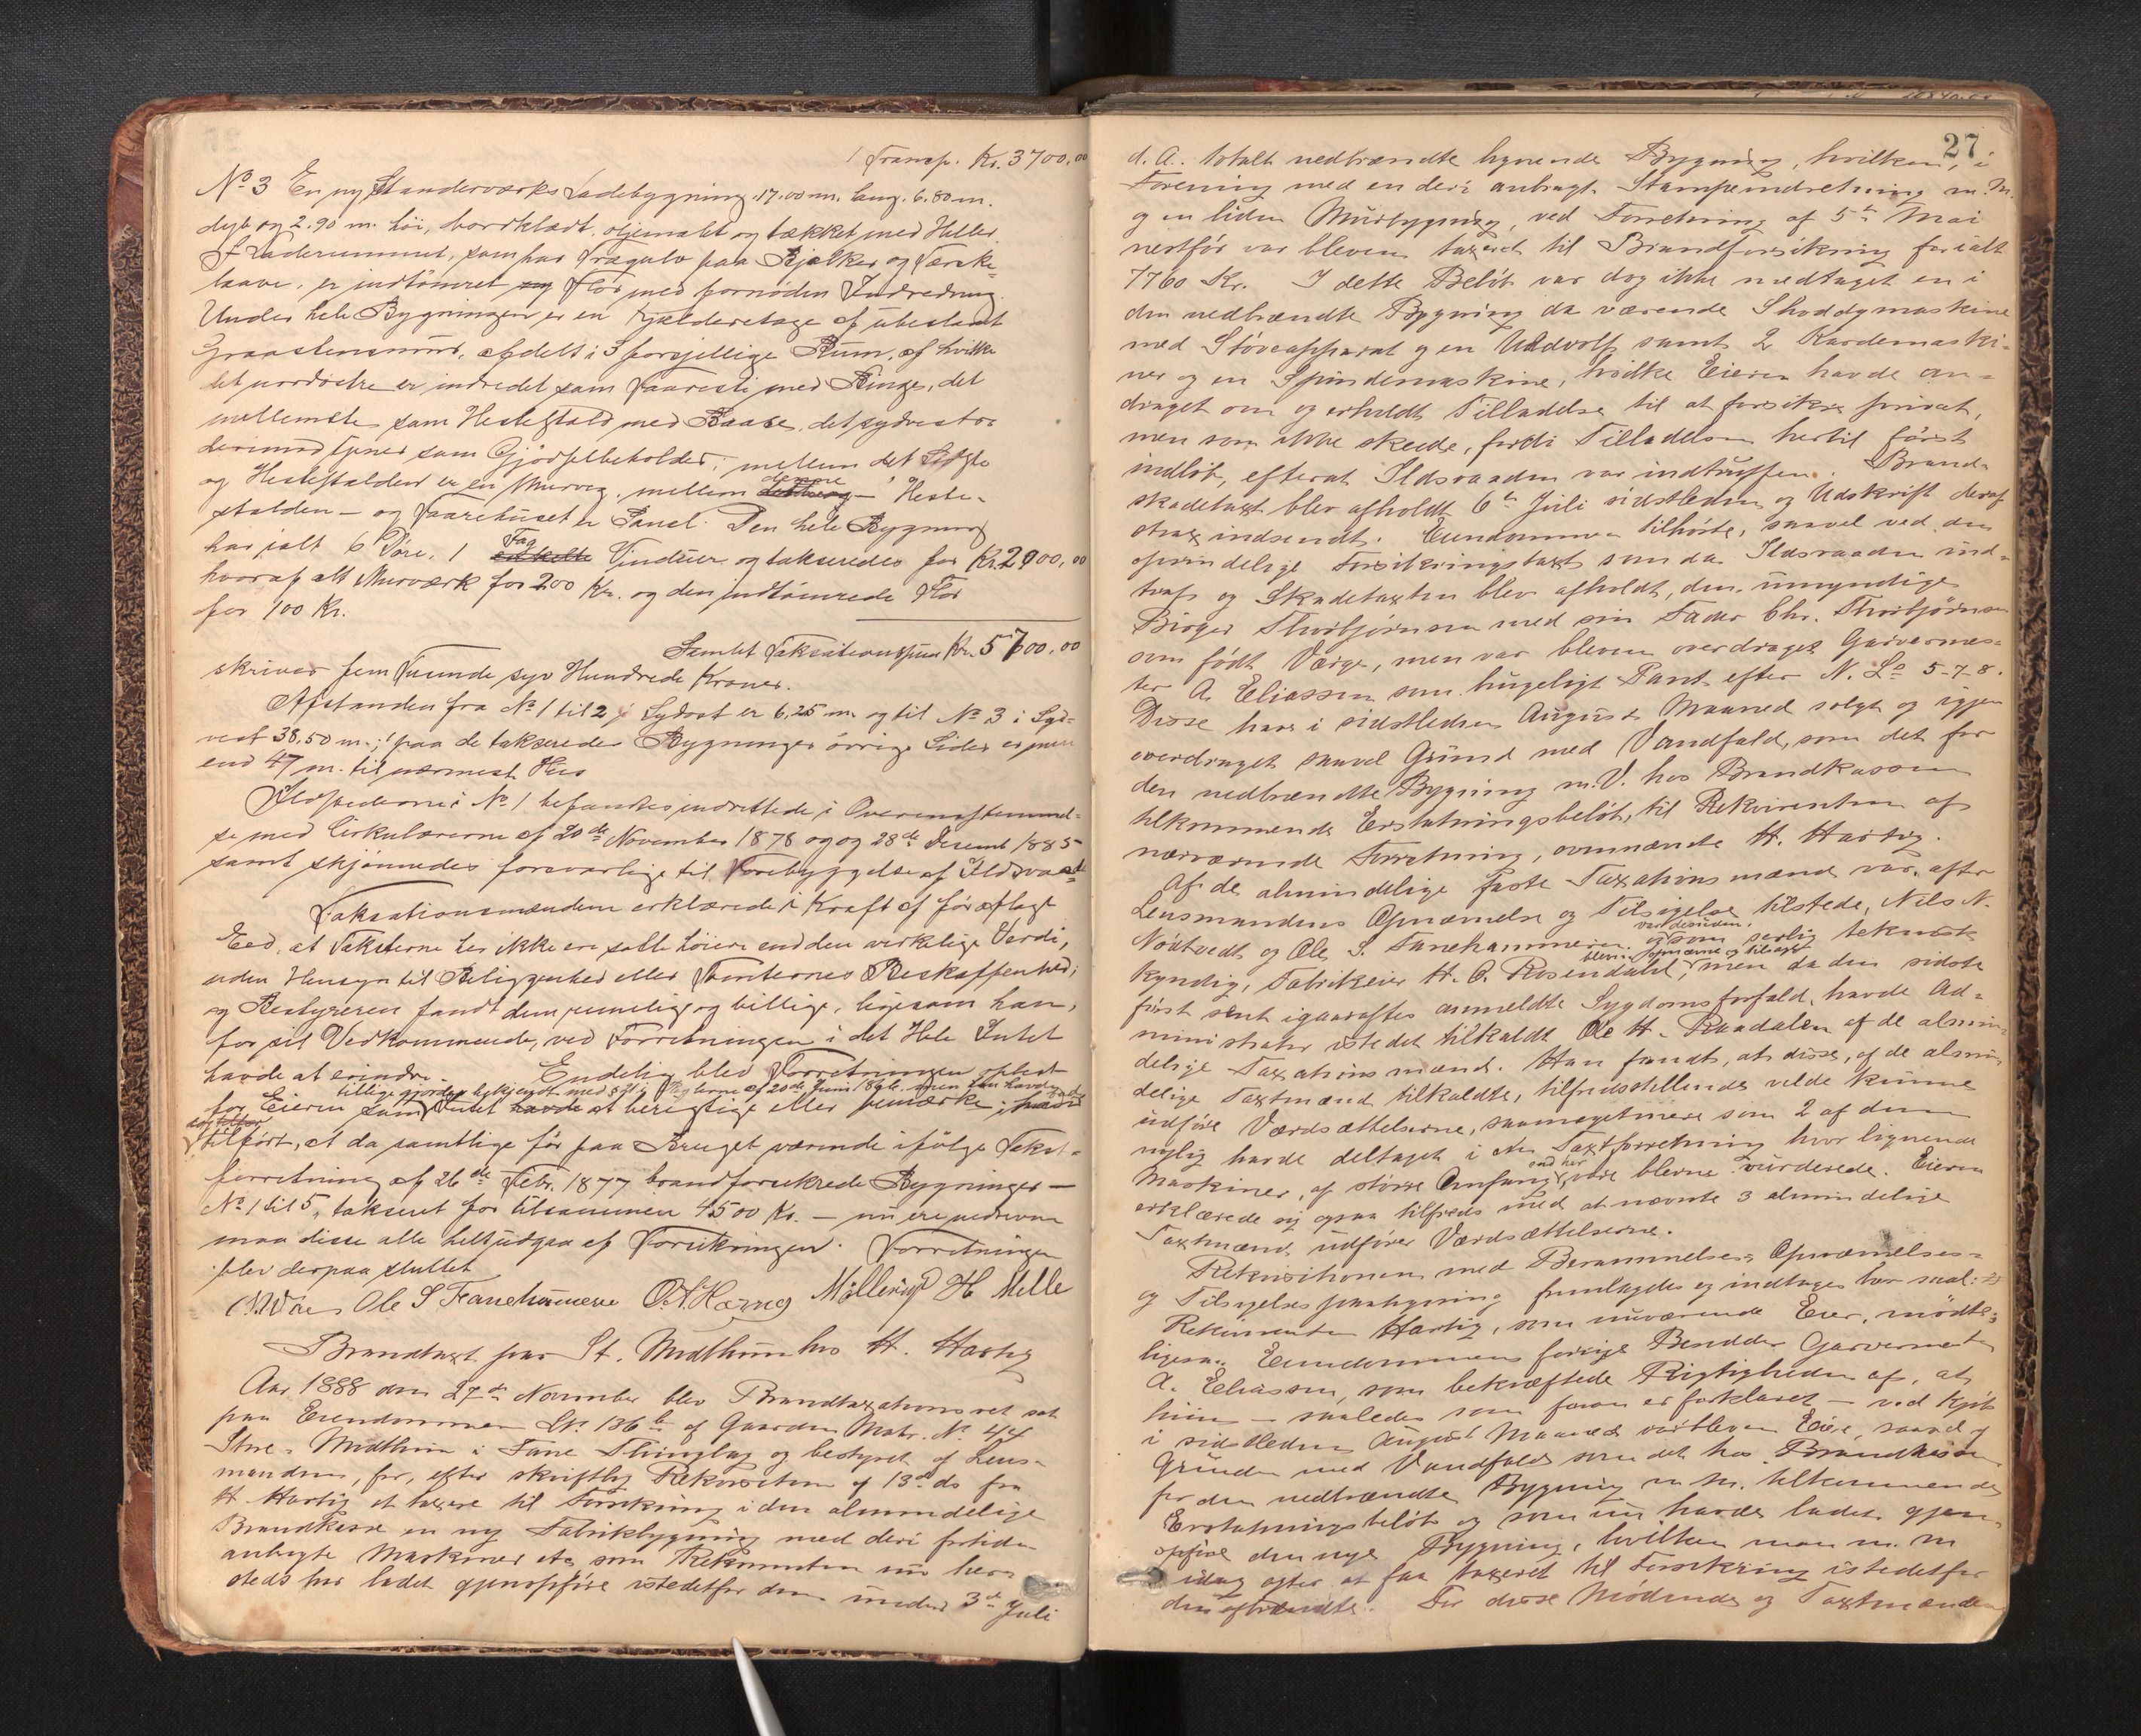 Transp. Kr. 3700,00
No 3 En ny Standerværks Ladebygning 17.00 m. lang. 6.80 m.
dyb og 2.90 m. høi, bordklædt, oljemalet og tækket med Heller
I Laderummet, som har Trægulv paa Bjelker og Tærske-
laave, er indtömret Flor med fornöden Indredning.
Under hele Bygningen er en Kjælderetage af utestaent
Graastensmur, afdelt i 3 forsjellige Rum, af hvilke
det nordöstre er indredet som Faaresti med Binge, det
mellemste som Hestestald med Baase, det sydvestre
derimod tjener som Gjödselbeholder; mellem det Sidste
og Hestestalden er en Murveg, mellem denne Heste-
stalden – og Faarehuset er Panel. Den hele Bygning
har ialt 6 Döre, 1 Fag Vinduer og takseredes for Kr. 2000,00
hvoraf alt Murværk for 200 Kr. og den indtömrede Flor
for 100 Kr.
Samlet Taksationssum Kr. 5700,00
skriver fem Tusinde syv Hundrede Kroner.
Afstanden fra No 1 til 2 i Sydost er 6,25 m. og til No 3 i Syd-
vest 38,50 m.; paa de takserede Bygninger övrige Sider er mere
end 47 m. til nærmest Hus
Ildstederne i No 1 befandtes indrettede i Overensstemmel-
se med Cirkulærerne af 20de November 1878 og 28de Decemb 1885
samt skjönnedes forsvarlige til Forebyggelse af Ildsvaade
Taksationsmændene erklærede i Kraft af för aflagt
Eed, at Taksterne her ikke ere satte höiere end den virkelige Verdi,
uden Hensyn til Beliggenhed eller Tomternes Beskaffenhed;
og Bestyreren fandt dem rimelige og billige, ligesom han,
for sit Vedkommende, ved Forretningen i det Hele Intet
havde at erindre. Endelig blev Forretningen oplæst
tillige gjordes bekjendt med
for Eieren som Intet at berigtige eller bemærke
tilfört, at da samtlige för paa Bruget værende ifölge Takst-
forretning af 26de Febr. 1877 brandforsikrede Bygninger –
No 1 til 5, takseret for tilsammen 4500 Kr. – nu ere nedrevne
maa disse alle helt udgaa af Forsikringen. Forretningen
blev derpaa sluttet
Ole S Fanehammeren Möllerup H Melle
Brandtaxt paa St. Midthun hos H. Hartig
Aar 1888 den 27de November blev Brandtaxationsret sat
paa Eiendommen Lb. 136b af Gaarden Matr. No 44
Store-Midthun i Fane Thinglag og bestyret af Lens-
manden, for, efter skriftlig Rekvisition af 13de ds fra
H Hartig at taxere til Forsikring i den almindelige
Brandkasse en ny Fabrikbygning med deri fortiden
anbragte Maskiner etc, som Rekvirenten nu her-
steds har ladet gjenopföre istedetfor den under 3de Juli
27
d. A. totalt nedbrændte lignende Bygning, hvilken, i
Forening med en deri anbragt Stampeindretning m. M.
og en liden Murbygning, ved Forretning af 5te Mai
nestför var bleven taxeret til Brandforsikring for ialt
7760 Kr. I dette Belöb var dog ikke medtaget en i
den nedbrændte Bygning da værende Shoddymaskine
med Stöveapparat og en Uldvolf samt 2 Kardemaski-
ner og en Spindemaskine, hvilke Eieren havde an-
draget om og erholdt Tilladelse til at forsikre privat,
men som ikke skede, fordi Tilladelsen hertil först
indlöb, efterat Ildsvaaden var indtruffen. Brand-
skadetaxt blev afholdt 6te Juli sidstleden og Udskrift deraf
strax indsendt. Eiendommen tilhörte, saavel ved den
oprindelige Forsikringstaxt som da Ildsvaaden ind-
traf og Skadetaxten blev afholdt, den umyndige
Birger Thorbjörnsen med sin Fader Chr. Thorbjörnsen
som födt Værge, men var bleven overdraget Garvermes-
ter A. Eliassen som brugeligt Pant efter N. L. 5-7-8.
Disse have i sidstleden August Maaned solgt og igjen
overdraget saavel Grund med Vandfald, som det for
den nedbrændte Bygning m. V. hos Brandkassen
tilkommende Erstatningsbelöb, til Rekvirenten af
nærværende Forretning, ovennævnte H. Hartig.
Af de almindelige faste Taxationsmænd var, efter
Lensmandens Opnævnelse og Tilsigelse tilstede, Nils N.
Nödtvedt og Ole S. Fanehammeren. var desuden, og som særlig teknisk
kyndig, Fabrikeier H. C. Rosendahl, bleven opnævnt og tilsagt, men da den sidste
först sent igaaraftes anmeldte Sygdomsforfald, havde Ad-
ministrator istedet tilkaldt Ole H. Raadalen af de almin-
delige Taxationsmænd. Han fandt, at disse, af de almin-
delige Taxtmænd tilkaldte, tilfredsstillende vilde kunne
udföre Værdsættelserne, saameget mere som 2 af dem
nylig havde deltaget i en Taxtforretning hvor lignende
Maskiner, af större Omfang end her, vare blevne vurderede. Eieren
erklærede sig ogsaa tilfreds med at nævnte 3 almindelige
Taxtmænd udförer Værdsættelserne.
Rekvisitionen med Berammelses-, Opnævnelses-
og Tilsigelsespaategning fremlagdes og indtages her saal:
Rekvirenten Hartig, som nuværende Eier, mödte;
ligesaa Eiendommens forrige Besidder Garvermester
A. Eliassen, som bekræftede Rigtigheden af, at
hiin – saaledes som foran er forklaret – ved Kjöb
i sidstleden August Maaned var bleven Eier, saavel af
Grunden med Vandfald som det hos Brandkassen
for den nedbrændte Bygning m. m. tilkommende
Erstatningsbelöb og som nu havde ladet gjen-
opföre den nye Bygning, hvilken man m. m
idag agter at faa taxeret til Forsikring istedetfor
den afbrændte. For disse Mödende og Taxtmændene